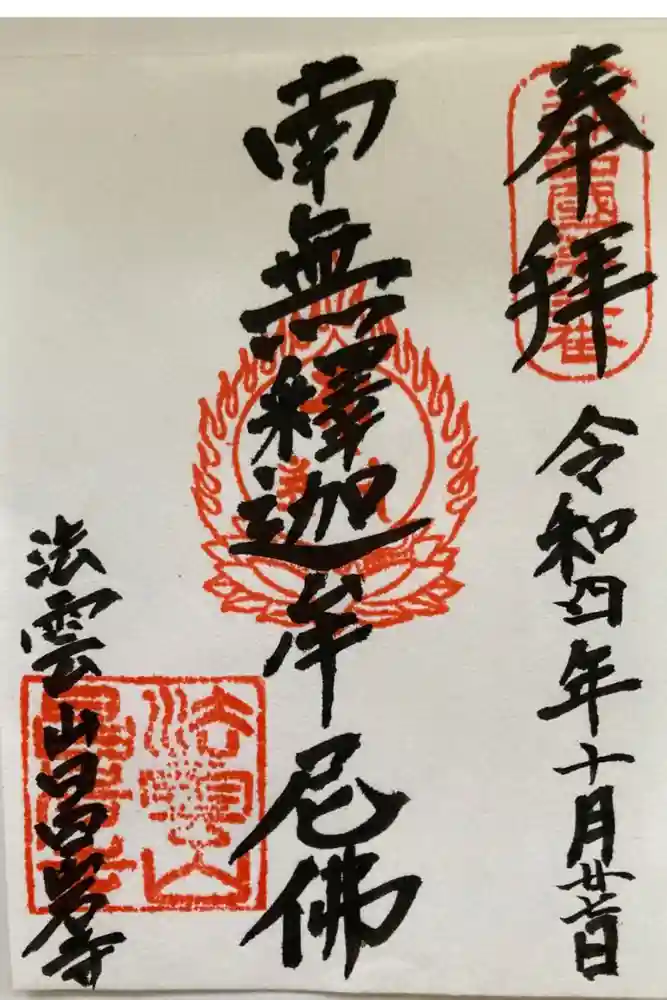 奉拝
令和四年十月
南無釋迦牟尼佛
法雲山昌岩寺
法雲山